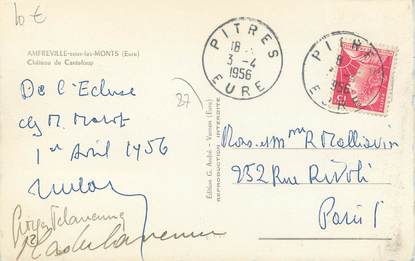 10 €
AMFREVILLE-sous-les-MONTS (Eure)
Château de Canteloup
De l'Ecluse
chez M. Marot
1er Avril 1956
27
Edition G. André - Vernon (Eure)
REPRODUCTION INTERDITE
PITRES
18
3-4
1956
EURE
PITRES
18
1956
EURE
Mr. et Mme R. Malliavin
252 Rue Rivoli
Paris 1